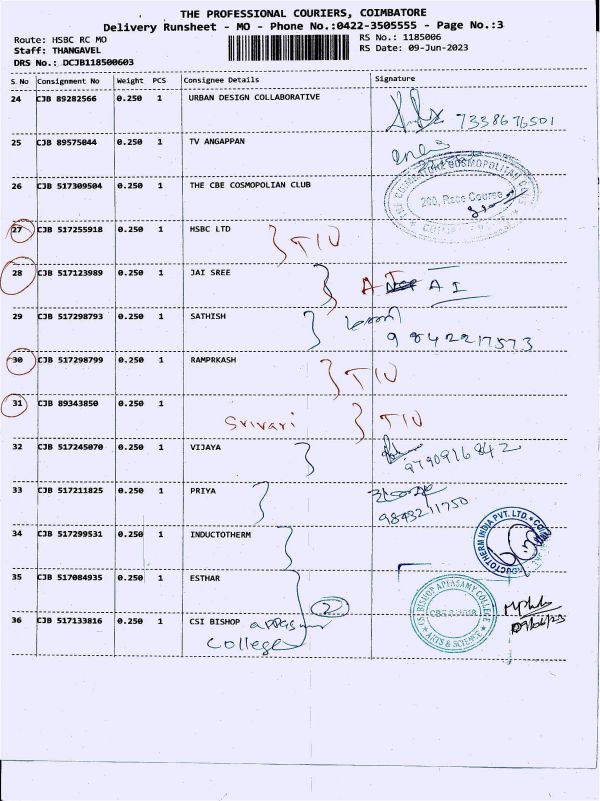 THE PROFESSIONAL COURIERS, COIMBATORE
Delivery Runsheet - MO - Phone No.:0422-3505555 - Page No.:3
Route: HSBC RC MO RS No.: 1185006
Staff: THANGAVEL RS Date: 09-Jun-2023
DRS No.: DCJB118500603
S No Consignment No Weight PCS Consignee Details Signature
24 CJB 89282566 0.250 1 URBAN DESIGN COLLABORATIVE 7338676501
25 CJB 89575044 0.250 1 TV ANGAPPAN
26 CJB 517309504 0.250 1 THE CBE COSMOPOLIAN CLUB 200, Race Course
27 CJB 517255918 0.250 1 HSBC LTD
28 CJB 517123989 0.250 1 JAI SREE
29 CJB 517298793 0.250 1 SATHISH
9842217573
30 CJB 517298799 0.250 1 RAMPRKASH
31 CJB 89343850 0.250 1
Srivari
32 CJB 517245070 0.250 1 VIJAYA
9790916842
33 CJB 517211825 0.250 1 PRIYA
9843211750
34 CJB 517299531 0.250 1 INDUCTOTHERM
35 CJB 517084935 0.250 1 ESTHAR
2
36 CJB 517133816 0.250 1 CSI BISHOP
College
CSI BISHOP APPASAMY COLLEGE
ARTS & SCIENCE